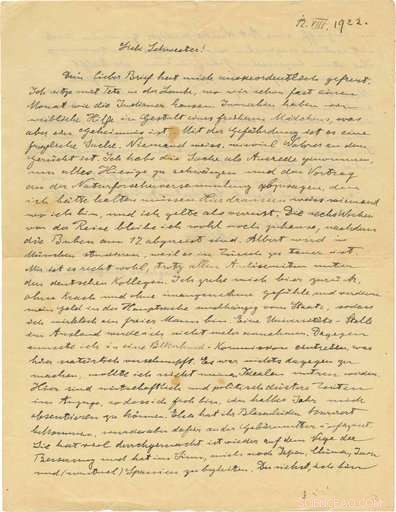 12. VIII. 1922.
Liebe Schwester!
Dein lieber Brief hat mich ausserordentlich gefreut.
Ich sitze mit Tete in der Laube, wo wir schon fast einen
Monat wie die Indianer hausen. Inzwischen haben wir
weibliche Hilfe in Gestalt eines früheren Mädchens, was
aber ein Geheimnis ist. Mit der Gefährdung ist es eine
fragliche Sache. Niemand weiss, wieviel Wahres an dem
Gerücht ist. Ich habe die Sache als Ausrede genommen,
um alles Hiesige zu schwänzen und das Vortrag
an der Naturforscherversammlung abzusagen, den
ich hätte halten müssen. Hier draussen weiss niemand
wo ich bin, und ich gelte als verreist. Die sechs Wochen
vor der Reise bleibe ich wohl noch zuhause, nachdem
die Buben am 17 abgereist sind. Albert wird in
München studieren, weil es in Zürich zu teuer ist.
Mir ist es recht wohl, trotz allen Antisemiten unter
den deutschen Kollegen. Ich ziehe mich hier zurück,
ohne Krach und ohne unangenehme Gefühle und verdiene
mein Geld in der Hauptsache unabhängig vom Staat, sodass
ich wirklich ein freier Mann bin. Eine Universitäts-Stelle
im Ausland werde ich nicht mehr annehmen. Dagegen
musste ich in eine Völkerbund-Kommission eintreten, was
hier natürlich verschnupft. Es war nichts dagegen zu
machen, wollte ich nicht meinen Idealen untreu werden.
Hier sind wirtschaftlich und politisch düstere Zeiten
im Anzuge, sodass ich froh bin, ein halbes Jahr mich
absentieren zu können. Elsa hat ihr Blasenleiden
bekommen, wurde aber dafür an der Gebärmutter
Sie hat viel durchgemacht ist wieder auf dem Wege der
Besserung und hat im Sinn, mich nach Japan, China, Java
und (eventuel) Spanien zu begleiten. Du siehst, ich bin